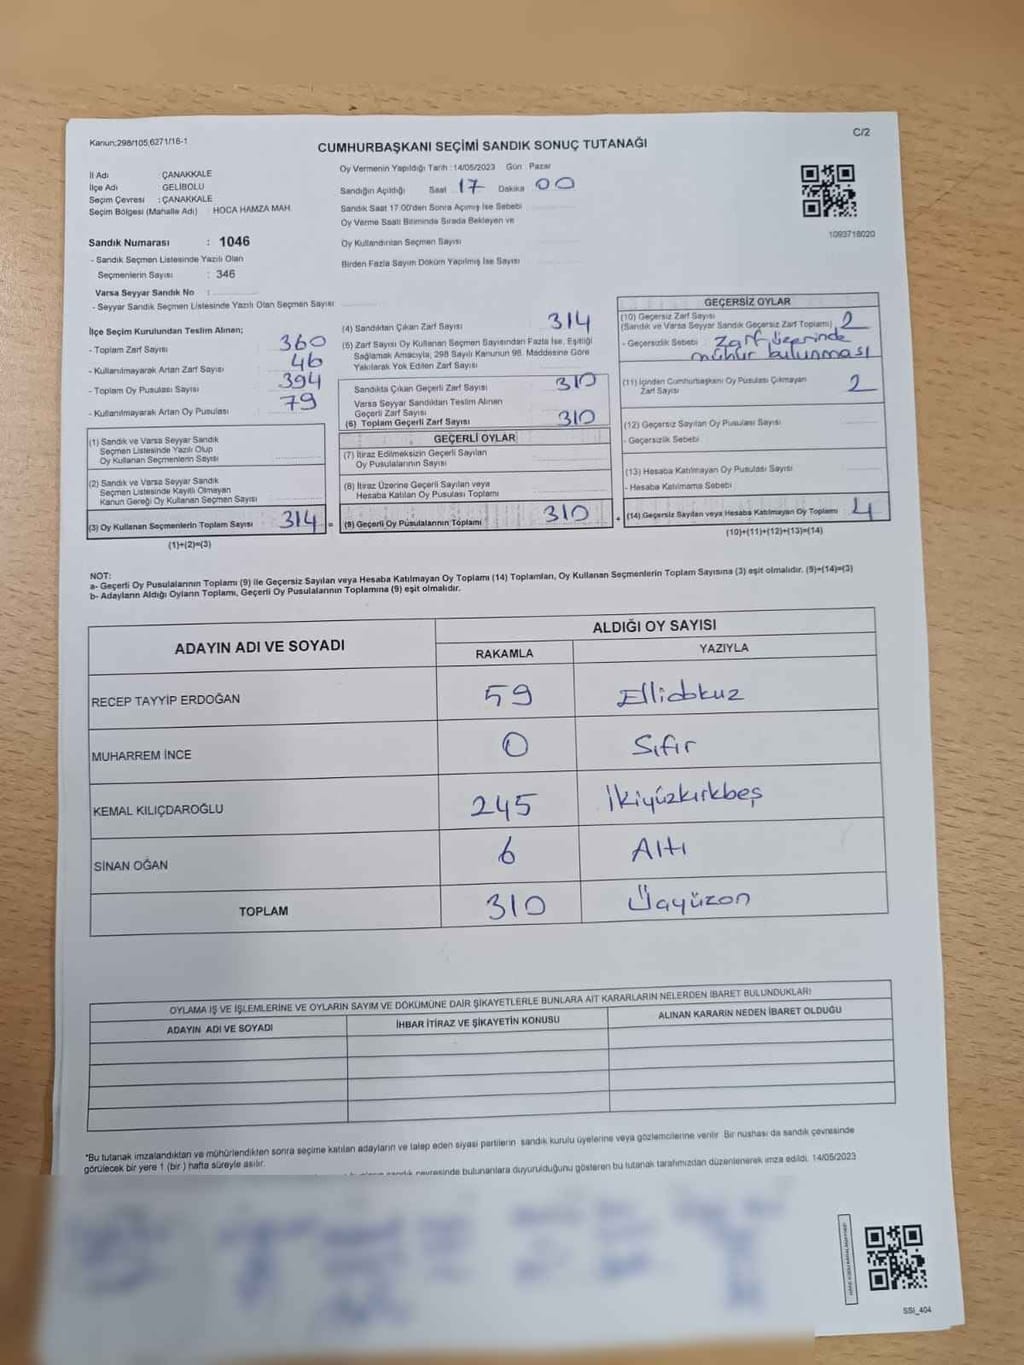 Kanun;298/105,6271/16-1
C/2
CUMHURBAŞKANI SEÇİMİ SANDIK SONUÇ TUTANAĞI
İl Adı : ÇANAKKALE
İlçe Adı : GELİBOLU
Seçim Çevresi : ÇANAKKALE
Seçim Bölgesi (Mahalle Adı) HOCA HAMZA MAH.
Sandık Numarası : 1046
- Sandık Seçmen Listesinde Yazılı Olan
Seçmenlerin Sayısı : 346
Varsa Seyyar Sandık No :
- Seyyar Sandık Seçmen Listesinde Yazılı Olan Seçmen Sayısı
Oy Vermenin Yapıldığı Tarih : 14/05/2023 Gün : Pazar
Sandığın Açıldığı Saat 17 Dakika 00
Sandık Saat 17:00'den Sonra Açımış İse Sebebi
Oy Verme Saati Bitiminde Sırada Bekleyen ve
Oy Kullandırılan Seçmen Sayısı
Birden Fazla Sayım Döküm Yapılmış İse Sayısı
1093718020
İlçe Seçim Kurulundan Teslim Alınan;
- Toplam Zarf Sayısı 360
- Kullanılmayarak Artan Zarf Sayısı 46
- Toplam Oy Pusulası Sayısı 394
- Kullanılmayarak Artan Oy Pusulası 79
(1) Sandık ve Varsa Seyyar Sandık
Seçmen Listesinde Yazılı Olup
Oy Kullanan Seçmenlerin Sayısı
(2) Sandık ve Varsa Seyyar Sandık
Seçmen Listesinde Kayıtlı Olmayan
Kanun Gereği Oy Kullanan Seçmen Sayısı
(3) Oy Kullanan Seçmenlerin Toplam Sayısı 314 =
(1)+(2)=(3)
(4) Sandıktan Çıkan Zarf Sayısı 314
(5) Zarf Sayısı Oy Kullanan Seçmen Sayısından Fazla İse, Eşitliği
Sağlamak Amacıyla, 298 Sayılı Kanunun 98. Maddesine Göre
Yakılarak Yok Edilen Zarf Sayısı
Sandıkta Çıkan Geçerli Zarf Sayısı 310
Varsa Seyyar Sandıktan Teslim Alınan
Geçerli Zarf Sayısı
(6) Toplam Geçerli Zarf Sayısı 310
GEÇERLİ OYLAR
(7) İtiraz Edilmeksizin Geçerli Sayılan
Oy Pusulalarının Sayısı
(8) İtiraz Üzerine Geçerli Sayılan veya
Hesaba Katılan Oy Pusulası Toplamı
(9) Geçerli Oy Pusulalarının Toplamı 310 +
GEÇERSİZ OYLAR
(10) Geçersiz Zarf Sayısı
(Sandık ve Varsa Seyyar Sandık Geçersiz Zarf Toplamı) 2
- Geçersizlik Sebebi : Zarf üzerinde
mühür bulunması
(11) İçinden Cumhurbaşkanı Oy Pusulası Çıkmayan
Zarf Sayısı 2
(12) Geçersiz Sayılan Oy Pusulası Sayısı
- Geçersizlik Sebebi
(13) Hesaba Katılmayan Oy Pusulası Sayısı
- Hesaba Katılmama Sebebi
(14) Geçersiz Sayılan veya Hesaba Katılmayan Oy Toplamı 4
(10)+(11)+(12)+(13)=(14)
NOT:
a- Geçerli Oy Pusulalarının Toplamı (9) ile Geçersiz Sayılan veya Hesaba Katılmayan Oy Toplamı (14) Toplamları, Oy Kullanan Seçmenlerin Toplam Sayısına (3) eşit olmalıdır. (9)+(14)=(3)
b- Adayların Aldığı Oyların Toplamı, Geçerli Oy Pusulalarının Toplamına (9) eşit olmalıdır.
ADAYIN ADI VE SOYADI
ALDIĞI OY SAYISI
RAKAMLA YAZIYLA
RECEP TAYYİP ERDOĞAN 59 Ellidokuz
MUHARREM İNCE 0 Sıfır
KEMAL KILIÇDAROĞLU 245 İkiyüzkırkbeş
SİNAN OĞAN 6 Altı
TOPLAM 310 Üçyüzon
OYLAMA İŞ VE İŞLEMLERİNE VE OYLARIN SAYIM VE DÖKÜMÜNE DAİR ŞİKAYETLERLE BUNLARA AİT KARARLARIN NELERDEN İBARET BULUNDUKLARI
ADAYIN ADI VE SOYADI İHBAR İTİRAZ VE ŞİKAYETİN KONUSU ALINAN KARARIN NEDEN İBARET OLDUĞU
*Bu tutanak imzalandıktan ve mühürlendikten sonra seçime katılan adayların ve talep eden siyasi partilerin sandık kurulu üyelerine veya gözlemcilerine verilir. Bir nushası da sandık çevresinde
görülecek bir yere 1 (bir) hafta süreyle asılır.
sandık çevresinde bulunanlara duyurulduğunu gösteren bu tutanak tarafımızdan düzenlenerek imza edildi. 14/05/2023
SSI_404